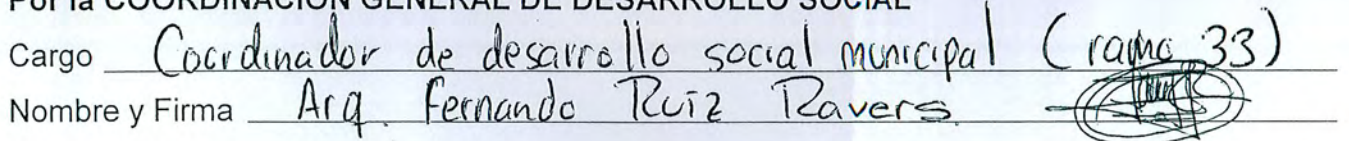 Por la COORDINACIÓN GENERAL DE DESARROLLO SOCIAL
Cargo Coordinador de desarrollo social municipal (ramo 33)
Nombre y Firma Arq. Fernando Ruiz Ravers